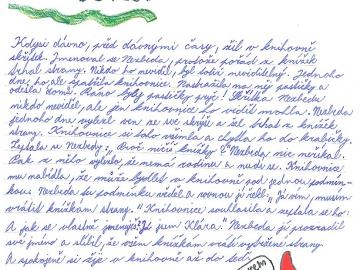 Kdysi dávno, před dávnými časy, žil v knihovně
skřítek. Jmenoval se Nezbeda, protože pořád z knížek
trhal strany. Nikdo ho neviděl, byl totiž neviditelný. Jednoho
dne ho ale spatřila knihovnice. Nastražila na něj pastičky a
odešla domů. Ráno byly pastičky pryč! Skřítka Nezbedu
nikdo neviděl, ale jen knihovnice ho vidět mohla. Nezbeda
jednoho dne vylezl ven ze své skrýše a šel trhat z knížek
strany. Knihovnice si toho všimla a chytla ho do krabičky.
Zeptala se Nezbedy: „Proč ničíš knížky?" Nezbeda nic neříkal.
Pak z něho vylezlo, že nemá rodinu a nudí se. Knihovnice
mu nabídla, že může bydlet v knihovně pod jednou podmín-
kou. Nezbeda tu podmínku věděl a rovnou jí řekl: „Já vím, musím
vrátit knížkám strany." Knihovnice souhlasila a zeptala se ho:
A jak se vlastně jmenuješ? Já jsem Klára. Nezbeda jí prozradil
své jméno a slíbil, že všem knížkám vrátí vytržené strany.
A spokojeně si žije v knihovně až do teď.